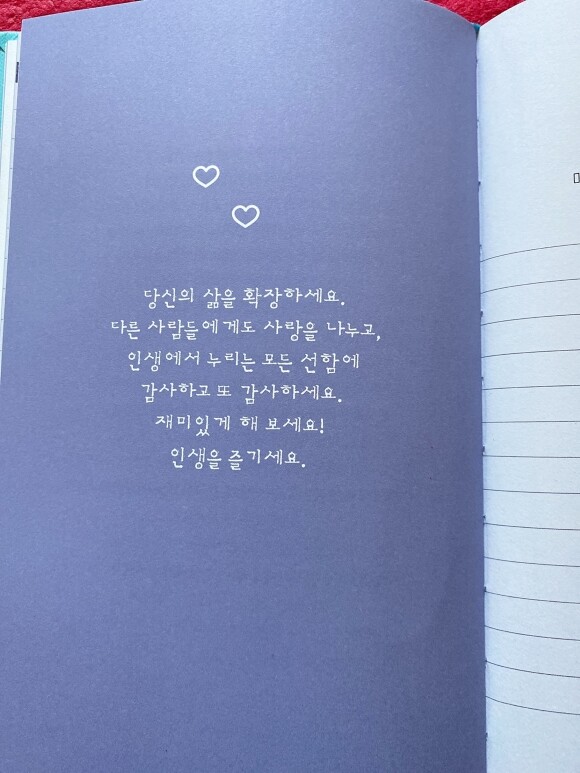 당신의 삶을 확장하세요.
다른 사람들에게도 사랑을 나누고,
인생에서 누리는 모든 선함에
감사하고 또 감사하세요.
재미있게 해 보세요!
인생을 즐기세요.